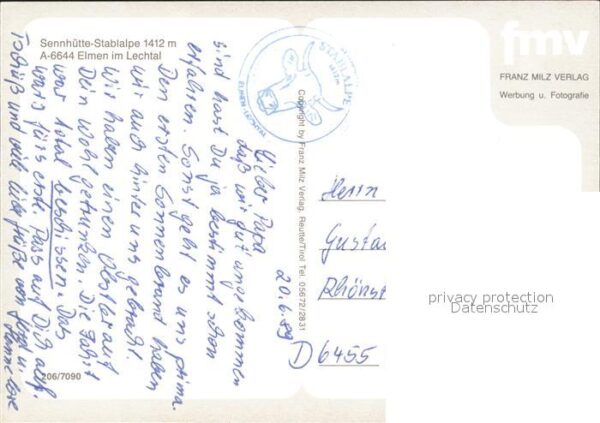 Sennhütte-Stablalpe 1412 m
A-6644 Elmen im Lechtal
fmv
FRANZ MILZ VERLAG
Werbung u. Fotografie
STABLALPE
Copyright by Franz Milz Verlag, Reutte/Tirol Tel. 05672/2831
206/7090
20.6.89
Lieber Papa
daß wir gut angekommen
sind hast Du ja bestimmt schon
erfahren. Sonst geht es uns prima.
Den ersten Sonnenbrand haben
wir auch hinter uns gebracht.
Wir haben einen Obstler auf
Dein Wohl getrunken. Die Fahrt
war total beschissen. Das
wär's fürs erste. Pass auf Dich auf.
Tschüß und viele liebe Grüße von
Herrn
Gustav
Rhönst
D 6455
privacy protection
Datenschutz